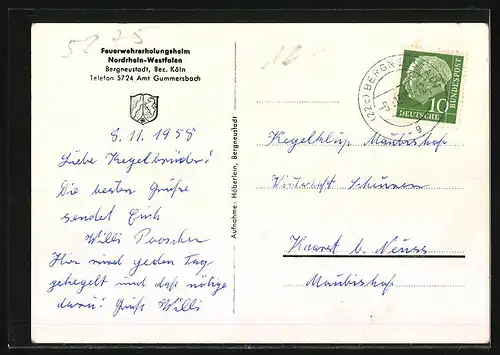 Feuerwehrerholungsheim
Nordrhein-Westfalen
Bergneustadt, Bez. Köln
Telefon 5724 Amt Gummersbach
8.11.1958
Liebe Kegelbrüder!
Die besten Grüße
sendet Euch
Willi
Hier wird jeden Tag
gekegelt und das nötige
darin! Gruß Willi
Aufnahme: Höberlein, Bergneustadt
(22c) BERGNE
10
DEUTSCHE
BUNDESPOST
Kegelklup Maubishof
Wirtschaft Schünen
Kaarst b. Neuss
Maubishof